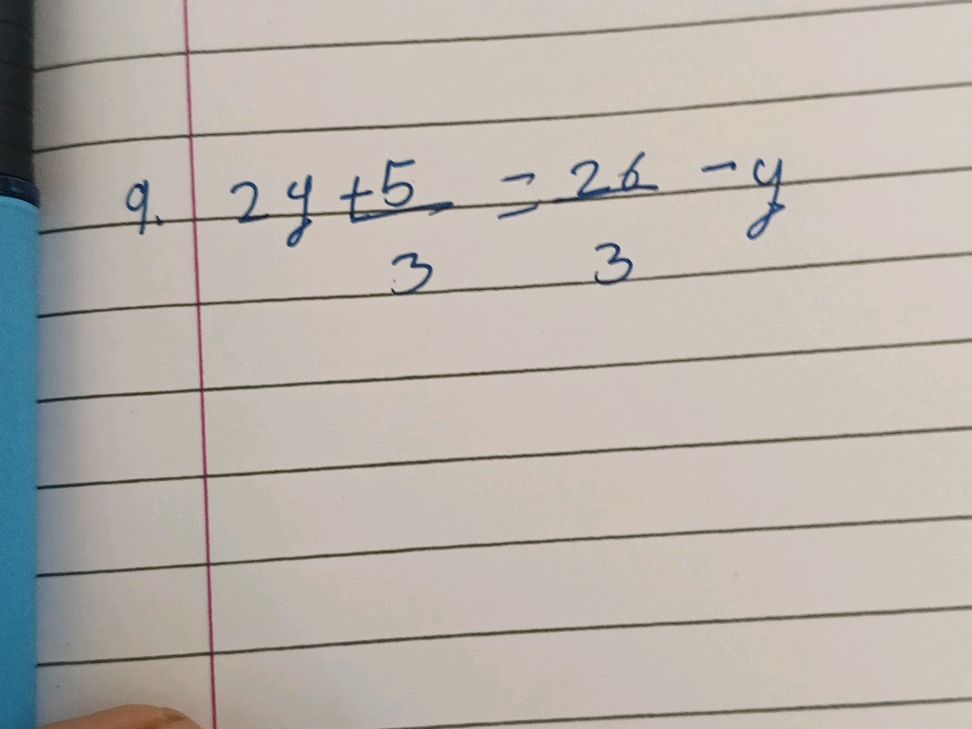 9. 2y + 5/3 = 26/3 - y